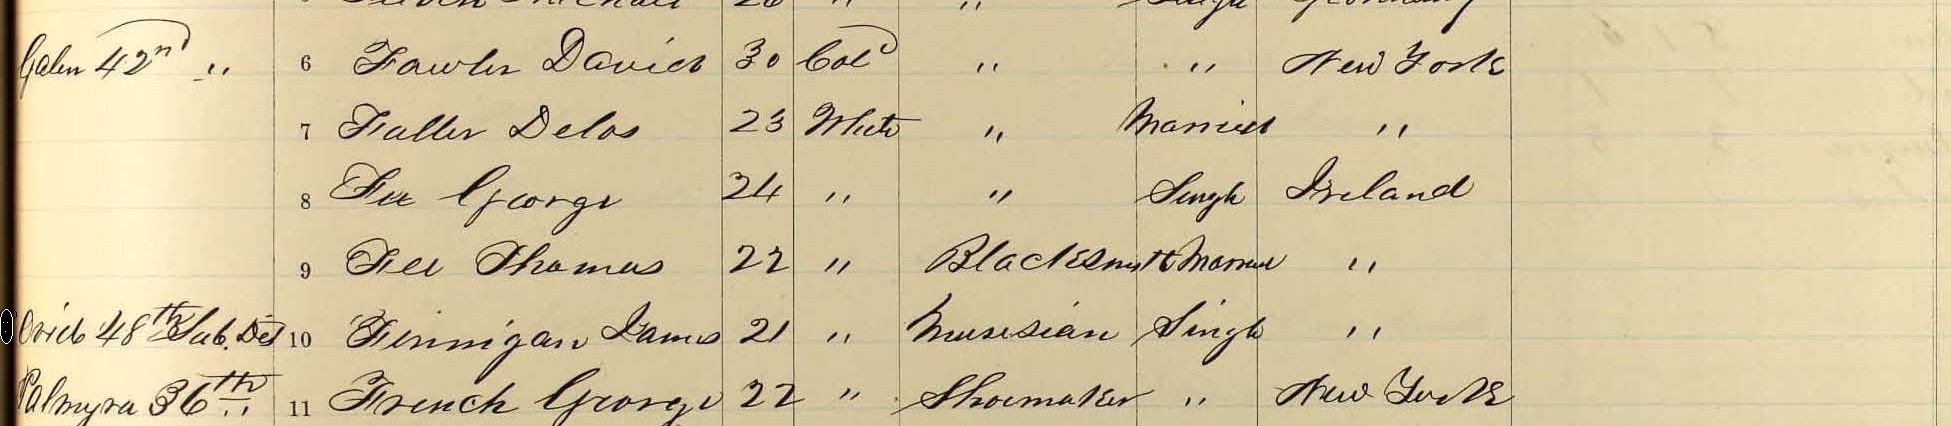 Galen 42nd " 6 Fowler David 30 Cold " " New York
7 Fuller Delos 23 White " Married "
8 Fee George 24 " " Single Ireland
9 Fee Thomas 22 " Blacksmith Married "
Ovid 48th Sub. Dist 10 Finnigan James 21 " Musisian Single "
Palmyra 36th " 11 French George 22 " Shoemaker " New York